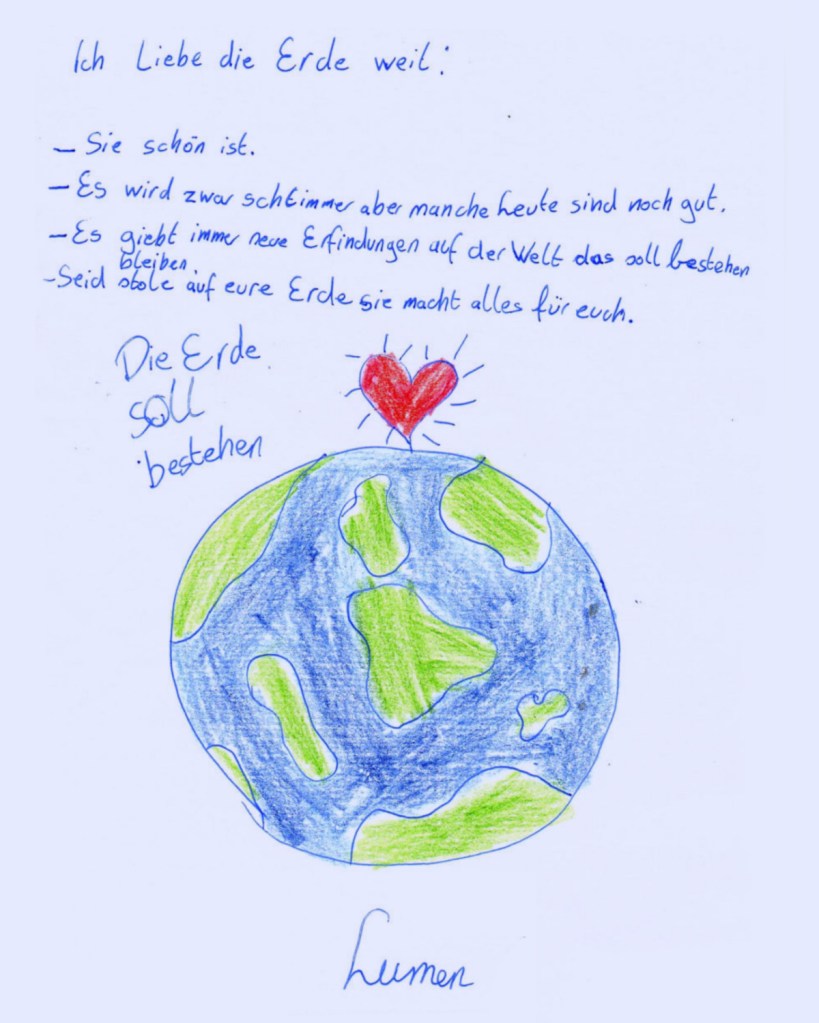 Ich Liebe die Erde weil:
- Sie schön ist.
- Es wird zwar schlimmer aber manche Leute sind noch gut.
- Es giebt immer neue Erfindungen auf der Welt das soll bestehen
bleiben.
- Seid stolz auf eure Erde sie macht alles für euch.
Die Erde
soll
bestehen
Lumen